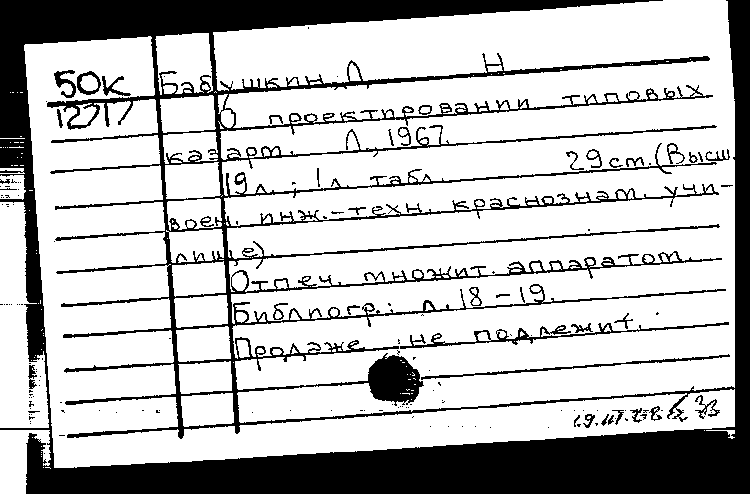 50К Бабушкин, Л Н
12717 О проектировании типовых
казарм. Л., 1967.
19л. ; 1л. табл. 29 см. (Высш.
воен. инж.-техн. краснознам. учи-
лище).
Отпеч. множит. аппаратом.
Библиогр.: л. 18-19.
Продаже не подлежит.